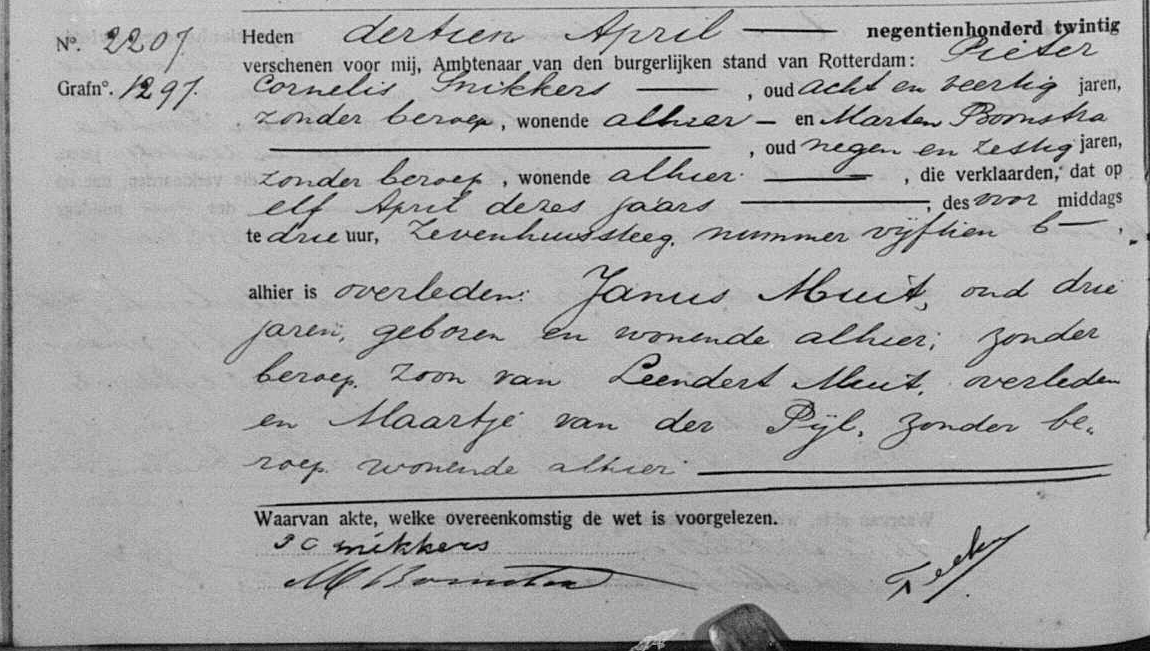 Nº. 2207 Heden dertien April negentienhonderd twintig
verschenen voor mij, Ambtenaar van den burgerlijken stand van Rotterdam: Pieter
Grafnº. 1297. Cornelis Snikkers, oud acht en veertig jaren,
zonder beroep, wonende alhier – en Marten Boonstra
, oud negen en zestig jaren,
zonder beroep, wonende alhier, die verklaarden, dat op
elf April dezes jaars, des voor middags
te drie uur, Zevenhuissteeg nummer vijftien b.
alhier is overleden: Janus Muit, oud drie
jaren, geboren en wonende alhier, zonder
beroep. zoon van Leendert Muit, overleden
en Maartje van der Pijl, zonder be„
roep wonende alhier
Waarvan akte, welke overeenkomstig de wet is voorgelezen.
P C Snikkers
M Boonstra